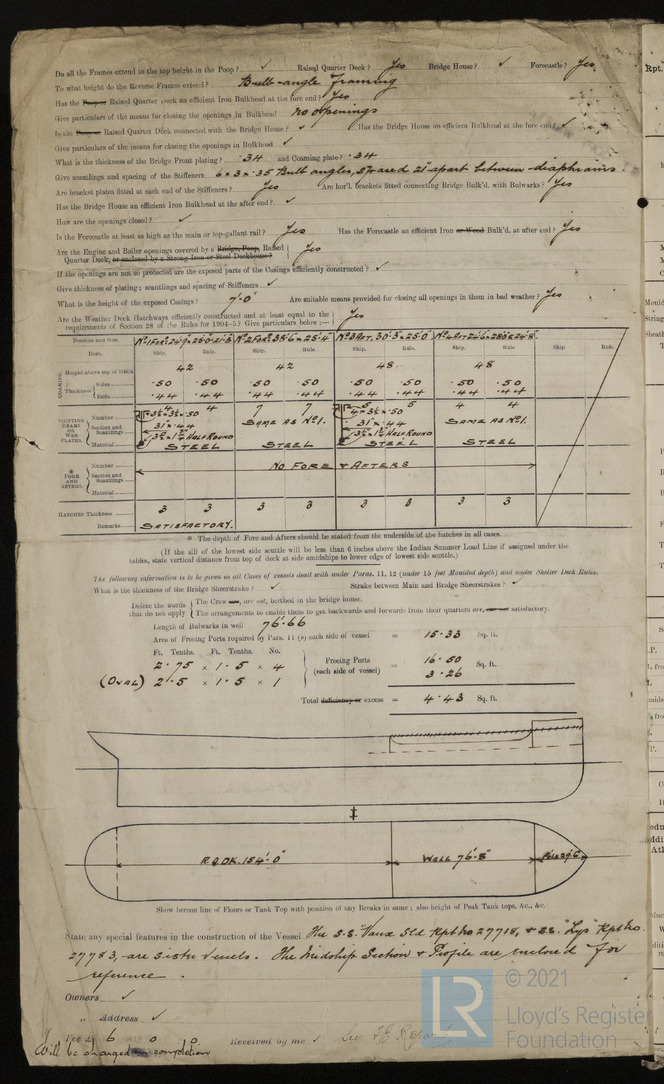 Do all the Frames extend to the top height in the Poop? ✓ Raised Quarter Deck? Yes Bridge House? ✓ Forecastle? Yes
To what height do the Reverse Frames extend? Bulb-angle Framing
Has the Poop or Raised Quarter Deck an efficient Iron Bulkhead at the fore end? Yes
Give particulars of the means for closing the openings in Bulkhead no openings
Is the Poop or Raised Quarter Deck connected with the Bridge House? ✓ Has the Bridge House an efficient Bulkhead at the fore end? ✓
Give particulars of the means for closing the openings in Bulkhead ✓
What is the thickness of the Bridge Front plating? ·34 and Coaming plate? ·34
Give scantlings and spacing of the Stiffeners 6 x 3 x ·35 Bulb angles, spaced 21" apart between diaphrams.
Are bracket plates fitted at each end of the Stiffeners? Yes Are hor'l. brackets fitted connecting Bridge Bulk'd. with Bulwarks? Yes
Has the Bridge House an efficient Bulkhead at the after end? ✓
How are the openings closed? ✓
Is the Forecastle at least as high as the main or top-gallant rail? Yes Has the Forecastle an efficient Iron or Wood Bulk'd. at after end? Yes
Are the Engine and Boiler openings covered by a Bridge, Poop, Raised
Quarter Deck, or enclosed by a Strong Iron or Steel Deckhouse? Yes
If the openings are not so protected are the exposed parts of the Casings efficiently constructed? ✓
Give thickness of plating; scantlings and spacing of Stiffeners ✓
What is the height of the exposed Casings? 7'·0" Are suitable means provided for closing all openings in them in bad weather? Yes
Are the Weather Deck Hatchways efficiently constructed and at least equal to the
requirements of Section 28 of the Rules for 1904-5? Give particulars below:— Yes
Position and size.
Item. Ship. Rule. Ship. Rule. Ship. Rule. Ship. Rule. Ship. Rule.
COAMING Height above top of DECK 42 42 48 48
Thickness Sides ·50 ·50 ·50 ·50 ·50 ·50 ·50 ·50
Ends ·44 ·44 ·44 ·44 ·44 ·44 ·44 ·44
SHIFTING BEAMS OR WEB PLATES. Number 4 4 7 7 5 5 4 4
Section and Scantlings 3½ x 3½ x ·50 SAME AS No1. 4 x 3½ x ·50 SAME AS No1.
31 x ·44 31" x ·44
HALF ROUND HALF ROUND
Material STEEL STEEL STEEL STEEL
* FORE AND AFTERS. Number
Section and Scantlings NO FORE & AFTERS
Material
HATCHES Thickness 3 3 3 3 3 3 3 3
Remarks SATISFACTORY.
* The depth of Fore and Afters should be stated from the underside of the hatches in all cases.
(If the sill of the lowest side scuttle will be less than 6 inches above the Indian Summer Load Line if assigned under the
tables, state vertical distance from top of deck at side amidships to lower edge of lowest side scuttle.)
The following information is to be given in all Cases of vessels dealt with under Paras. 11, 12 (under 15 feet Moulded depth) and under Shelter Deck Rules.
What is the thickness of the Bridge Sheerstrake? ✓ Strake between Main and Bridge Sheerstrakes? ✓
Delete the words The Crew are, are not, berthed in the bridge house.
that do not apply The arrangements to enable them to get backwards and forwards from their quarters are, are not satisfactory.
Length of Bulwarks in well 76'·66
Area of Freeing Ports required by Para. 11 (e) each side of vessel = 15·33 Sq. ft.
Ft. Tenths. Ft. Tenths. No.
2·75 x 1·5 x 4 Freeing Ports = 16·50 Sq. ft.
(OVAL) 2·5 x 1·5 x 1 (each side of vessel) 3·26
Total deficiency or excess = 4·43 Sq. ft.
R.Q.DK. 154'·0" WELL 76'·8"
Show hereon line of Floors or Tank Top with position of any Breaks in same; also height of Peak Tank tops, &c., &c.
State any special features in the construction of the Vessel. The S.S. "Vaux" Sld Rpt No 27718, & S.S. "Lys" Rpt No.
27783, are sister vessels. The Midship Section & Profile are enclosed for
reference.
Owners ✓
„ Address ✓
Fee £ 6 0 0 Received by me ✓
Will be charged on completion
© 2021
LR
Lloyd's Register
Foundation
Rpt.